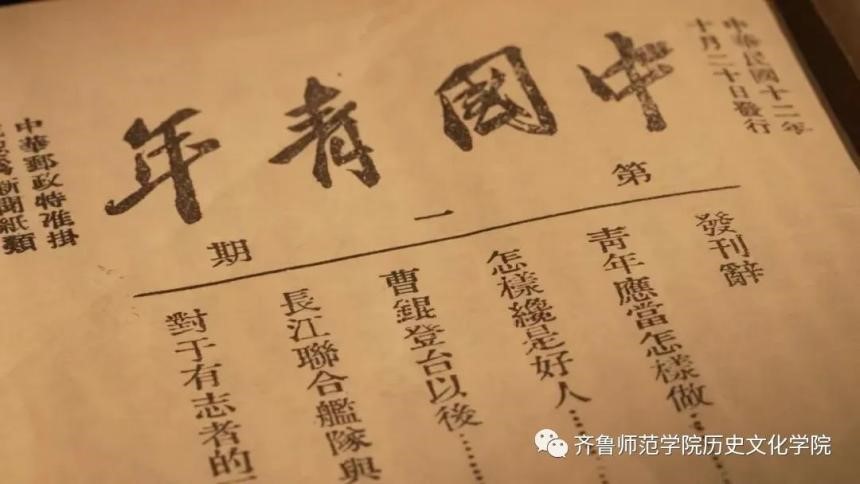 中華民國十二年
十月二十日發行
中國青年
第一期
發刊辭
青年應當怎樣做……
怎樣纔是好人……
曹錕登台以後……
長江聯合艦隊與
對于有志者的
中華郵政特准掛
新聞紙類
齐鲁师范学院历史文化学院